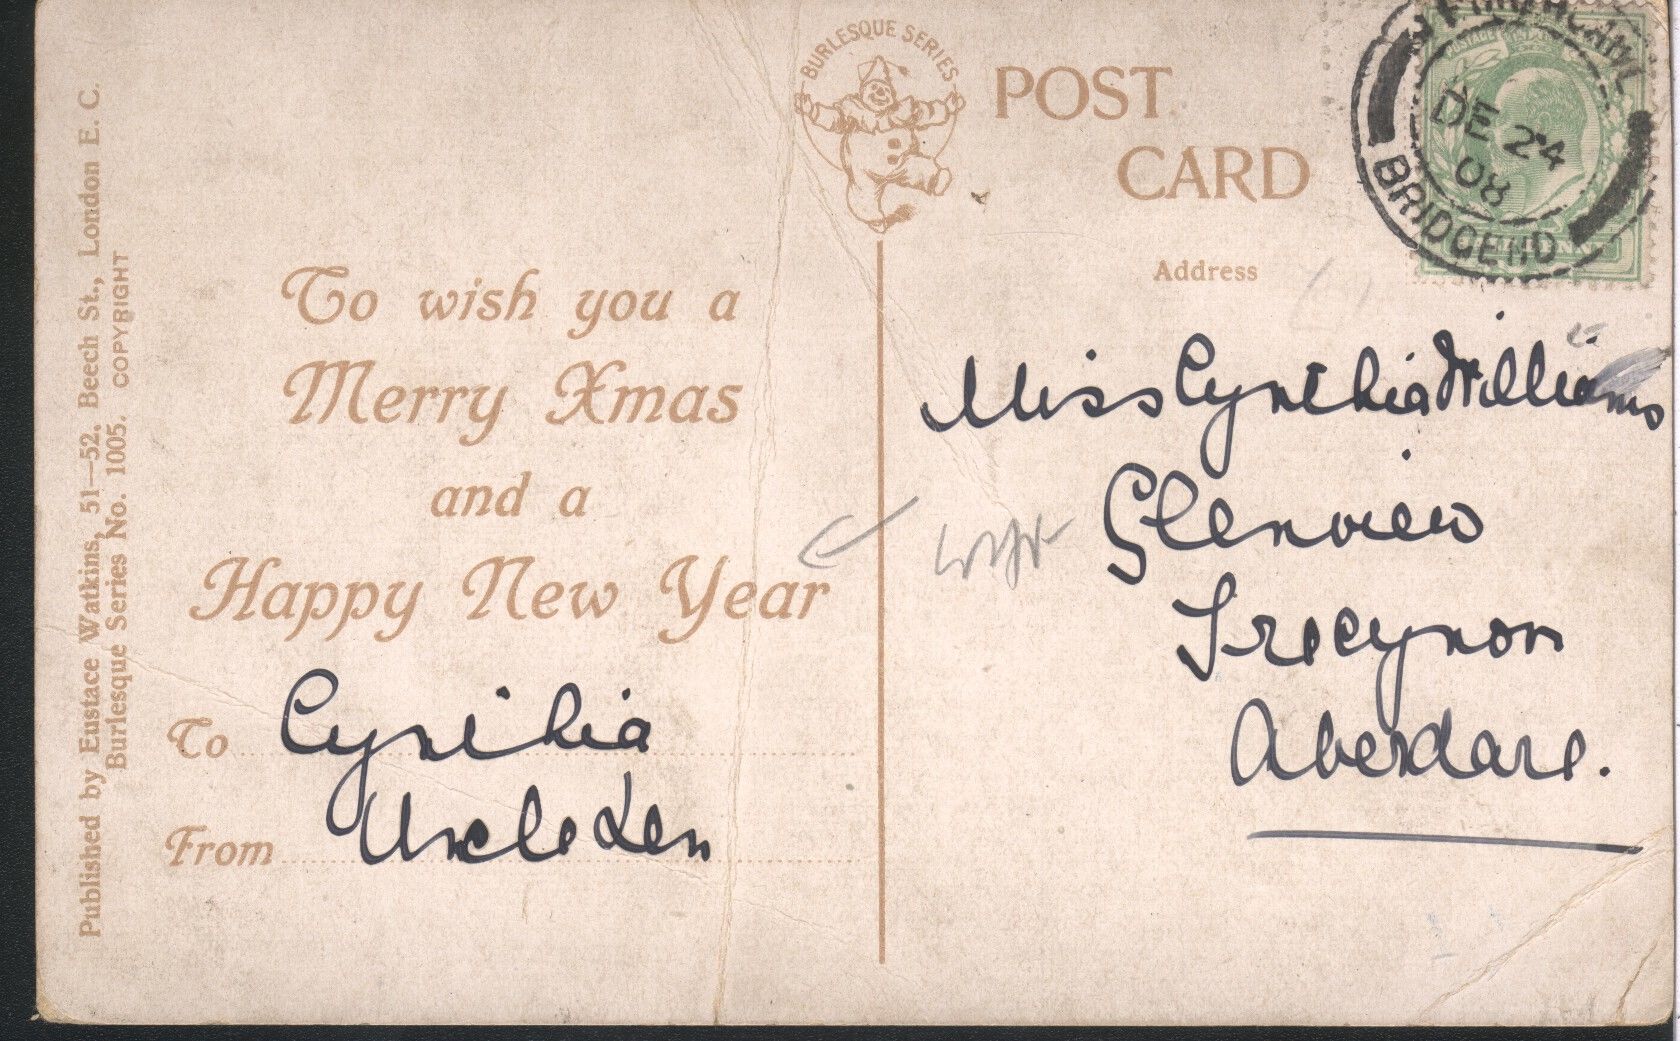 Published by Eustace Watkins, 51—52, Beech St., London E. C.
Burlesque Series No. 1005. COPYRIGHT
BURLESQUE SERIES
POST
CARD
DE 24
08
BRIDGEND
Address
To wish you a
Merry Xmas
and a
Happy New Year
To Cynthia
From Uncle Len
Miss Cynthia Williams
Glenview
Trecynon
Aberdare.